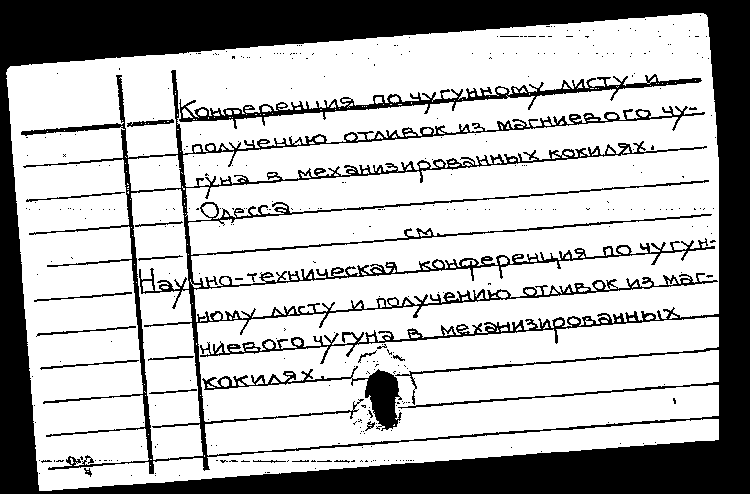 Конференция по чугунному листу и
получению отливок из магниевого чу-
гуна в механизированных кокилях.
Одесса
см.
Научно-техническая конференция по чугун-
ному листу и получению отливок из маг-
ниевого чугуна в механизированных
кокилях.